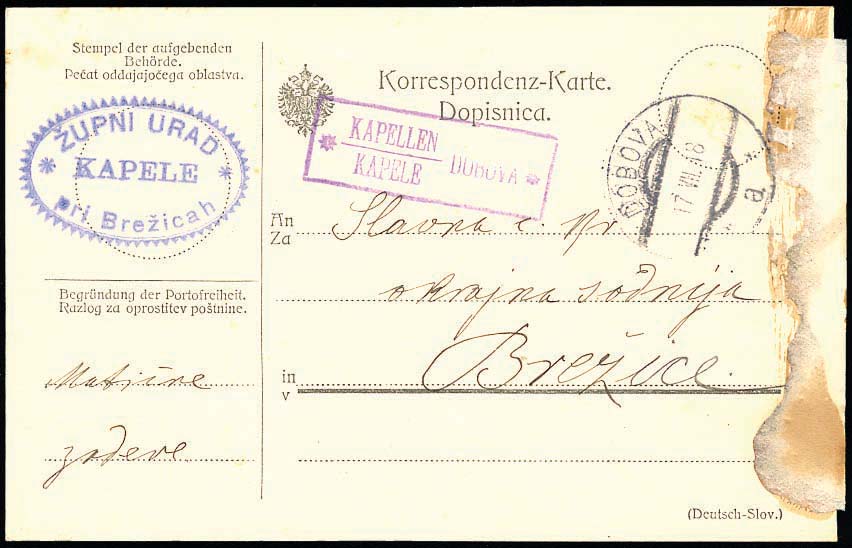 Stempel der aufgebenden
Behörde.
Pečat oddajajočega oblastva.
ŽUPNI URAD
* KAPELE *
pri Brežicah
Begründung der Portofreiheit.
Razlog za oprostitev poštnine.
zadeve
Korrespondenz-Karte.
Dopisnica.
* KAPELLEN
KAPELE
DOBOVA *
DOBOVA
17 VII 18
a
An
Za
Slavna c. kr
okrajna sodnija
in
v
Brežice.
(Deutsch-Slov.)